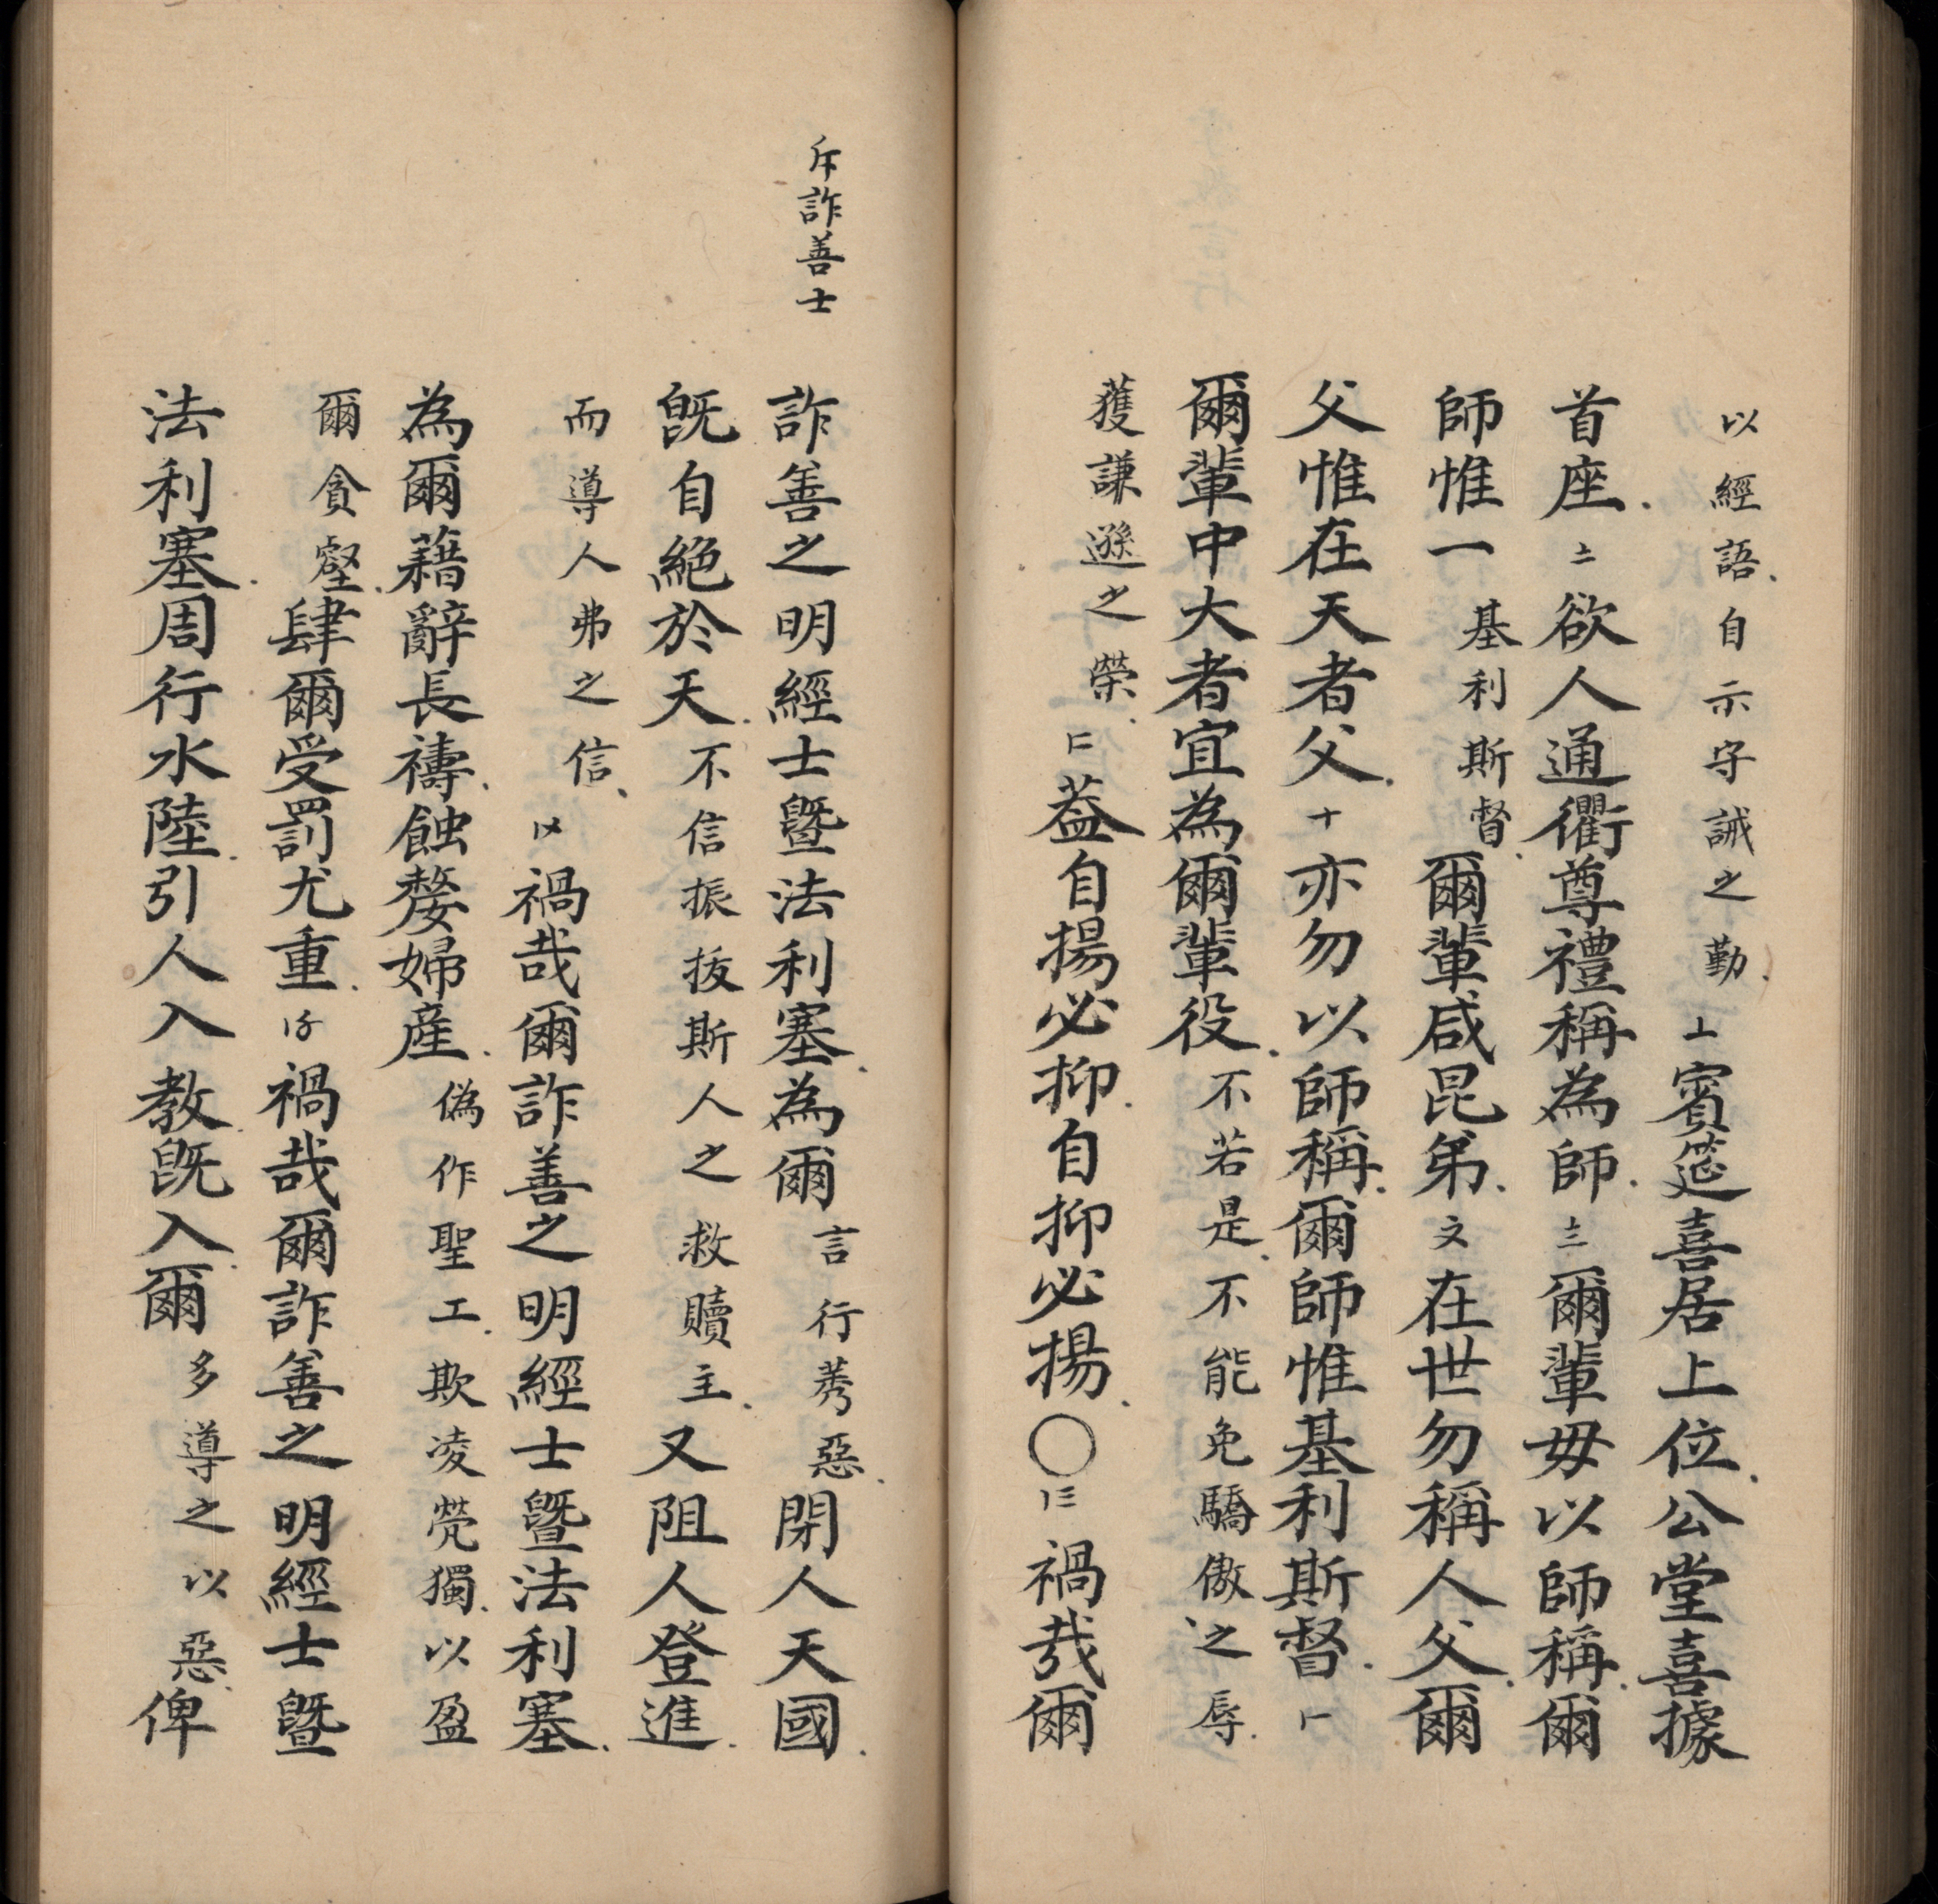 以經語自示守誡之勤〦賓筵喜居上位公堂喜據
首座〧欲人通衢尊禮稱為師〨爾輩毋以師稱爾
師惟一基利斯督爾輩咸昆弟〩在世勿稱人父爾
父惟在天者父十亦勿以師稱爾師惟基利斯督
爾輩中大者宜為爾輩役不若是不能免驕傲之辱
獲謙遜之榮蓋自揚必抑自抑必揚〇禍哉爾
斥詐善士
詐善之明經士曁法利塞為爾言行莠惡閉人天國
旣自絕於天不信振拔斯人之救贖主又阻人登進
而導人弗之信禍哉爾詐善之明經士曁法利塞
為爾藉辭長禱蝕嫠婦產偽作聖工欺凌煢獨以盈
爾貪壑肆爾受罰尤重禍哉爾詐善之明經士曁
法利塞周行水陸引人入教旣入爾多導之以惡俾